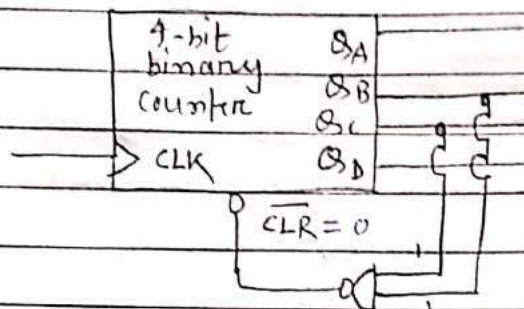 4-bit
binary
counter
QA
QB
QC
QD
CLK
CLR = 0
1
1